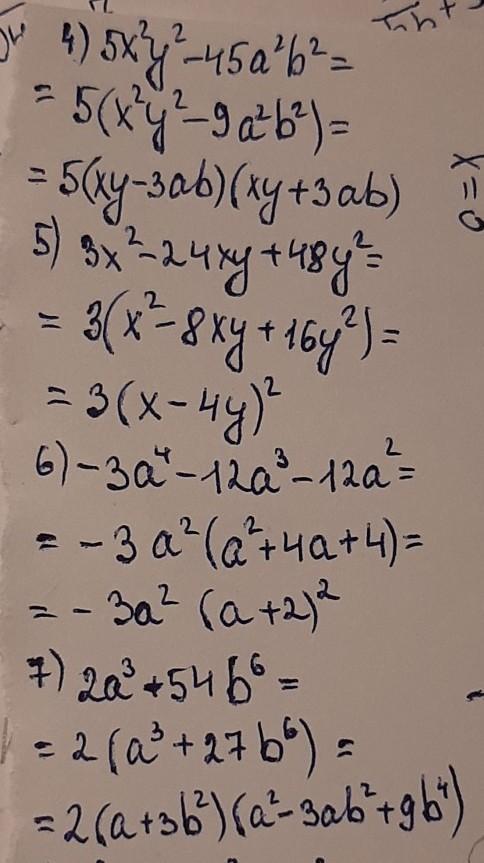 4) 5x²y² - 45a²b² =
= 5(x²y² - 9a²b²) =
= 5(xy - 3ab)(xy + 3ab)
5) 3x² - 24xy + 48y² =
= 3(x² - 8xy + 16y²) =
= 3(x - 4y)²
6) - 3a⁴ - 12a³ - 12a² =
= - 3a²(a² + 4a + 4) =
= - 3a² (a + 2)²
7) 2a³ + 54b⁶ =
= 2(a³ + 27b⁶) =
= 2(a + 3b²)(a² - 3ab² + 9b⁴)